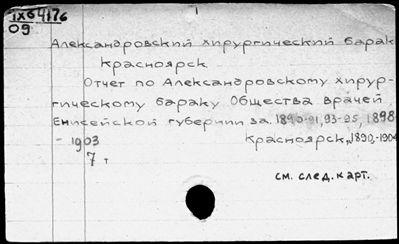 IX64176
09
Александровский хирургический барак
Красноярск
Отчет по Александровскому хирур-
гическому бараку Общества врачей
Енисейской губернии за 1890-91, 93-95, 1898
- 1903 Красноярск, 1890,-1904
7 т
см. след. карт.